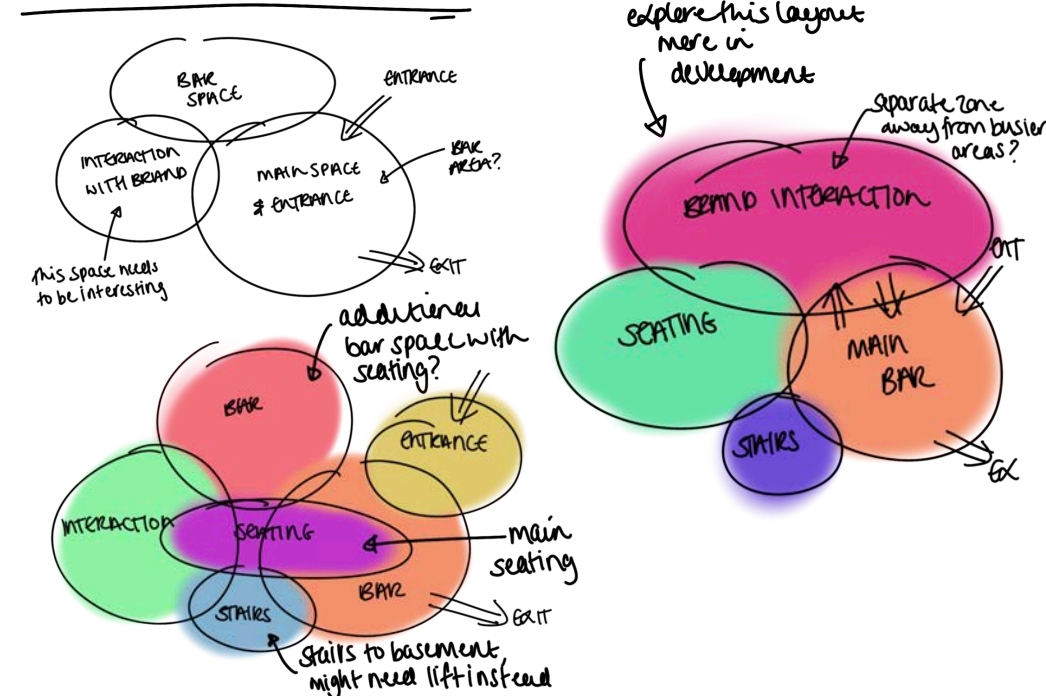 BAR
SPACE
ENTRANCE
INTERACTION
WITH BRAND
MAIN SPACE
& ENTRANCE
BAR
AREA?
EXIT
this space needs
to be interesting
additional
bar space with
seating?
BAR
ENTRANCE
INTERACTION
SEATING
main
seating
BAR
STAIRS
EXIT
Stairs to basement,
might need lift instead
explore this layout
more in
development
separate zone
away from busier
areas?
BRAND INTERACTION
ENT
SEATING
MAIN
BAR
STAIRS
EX